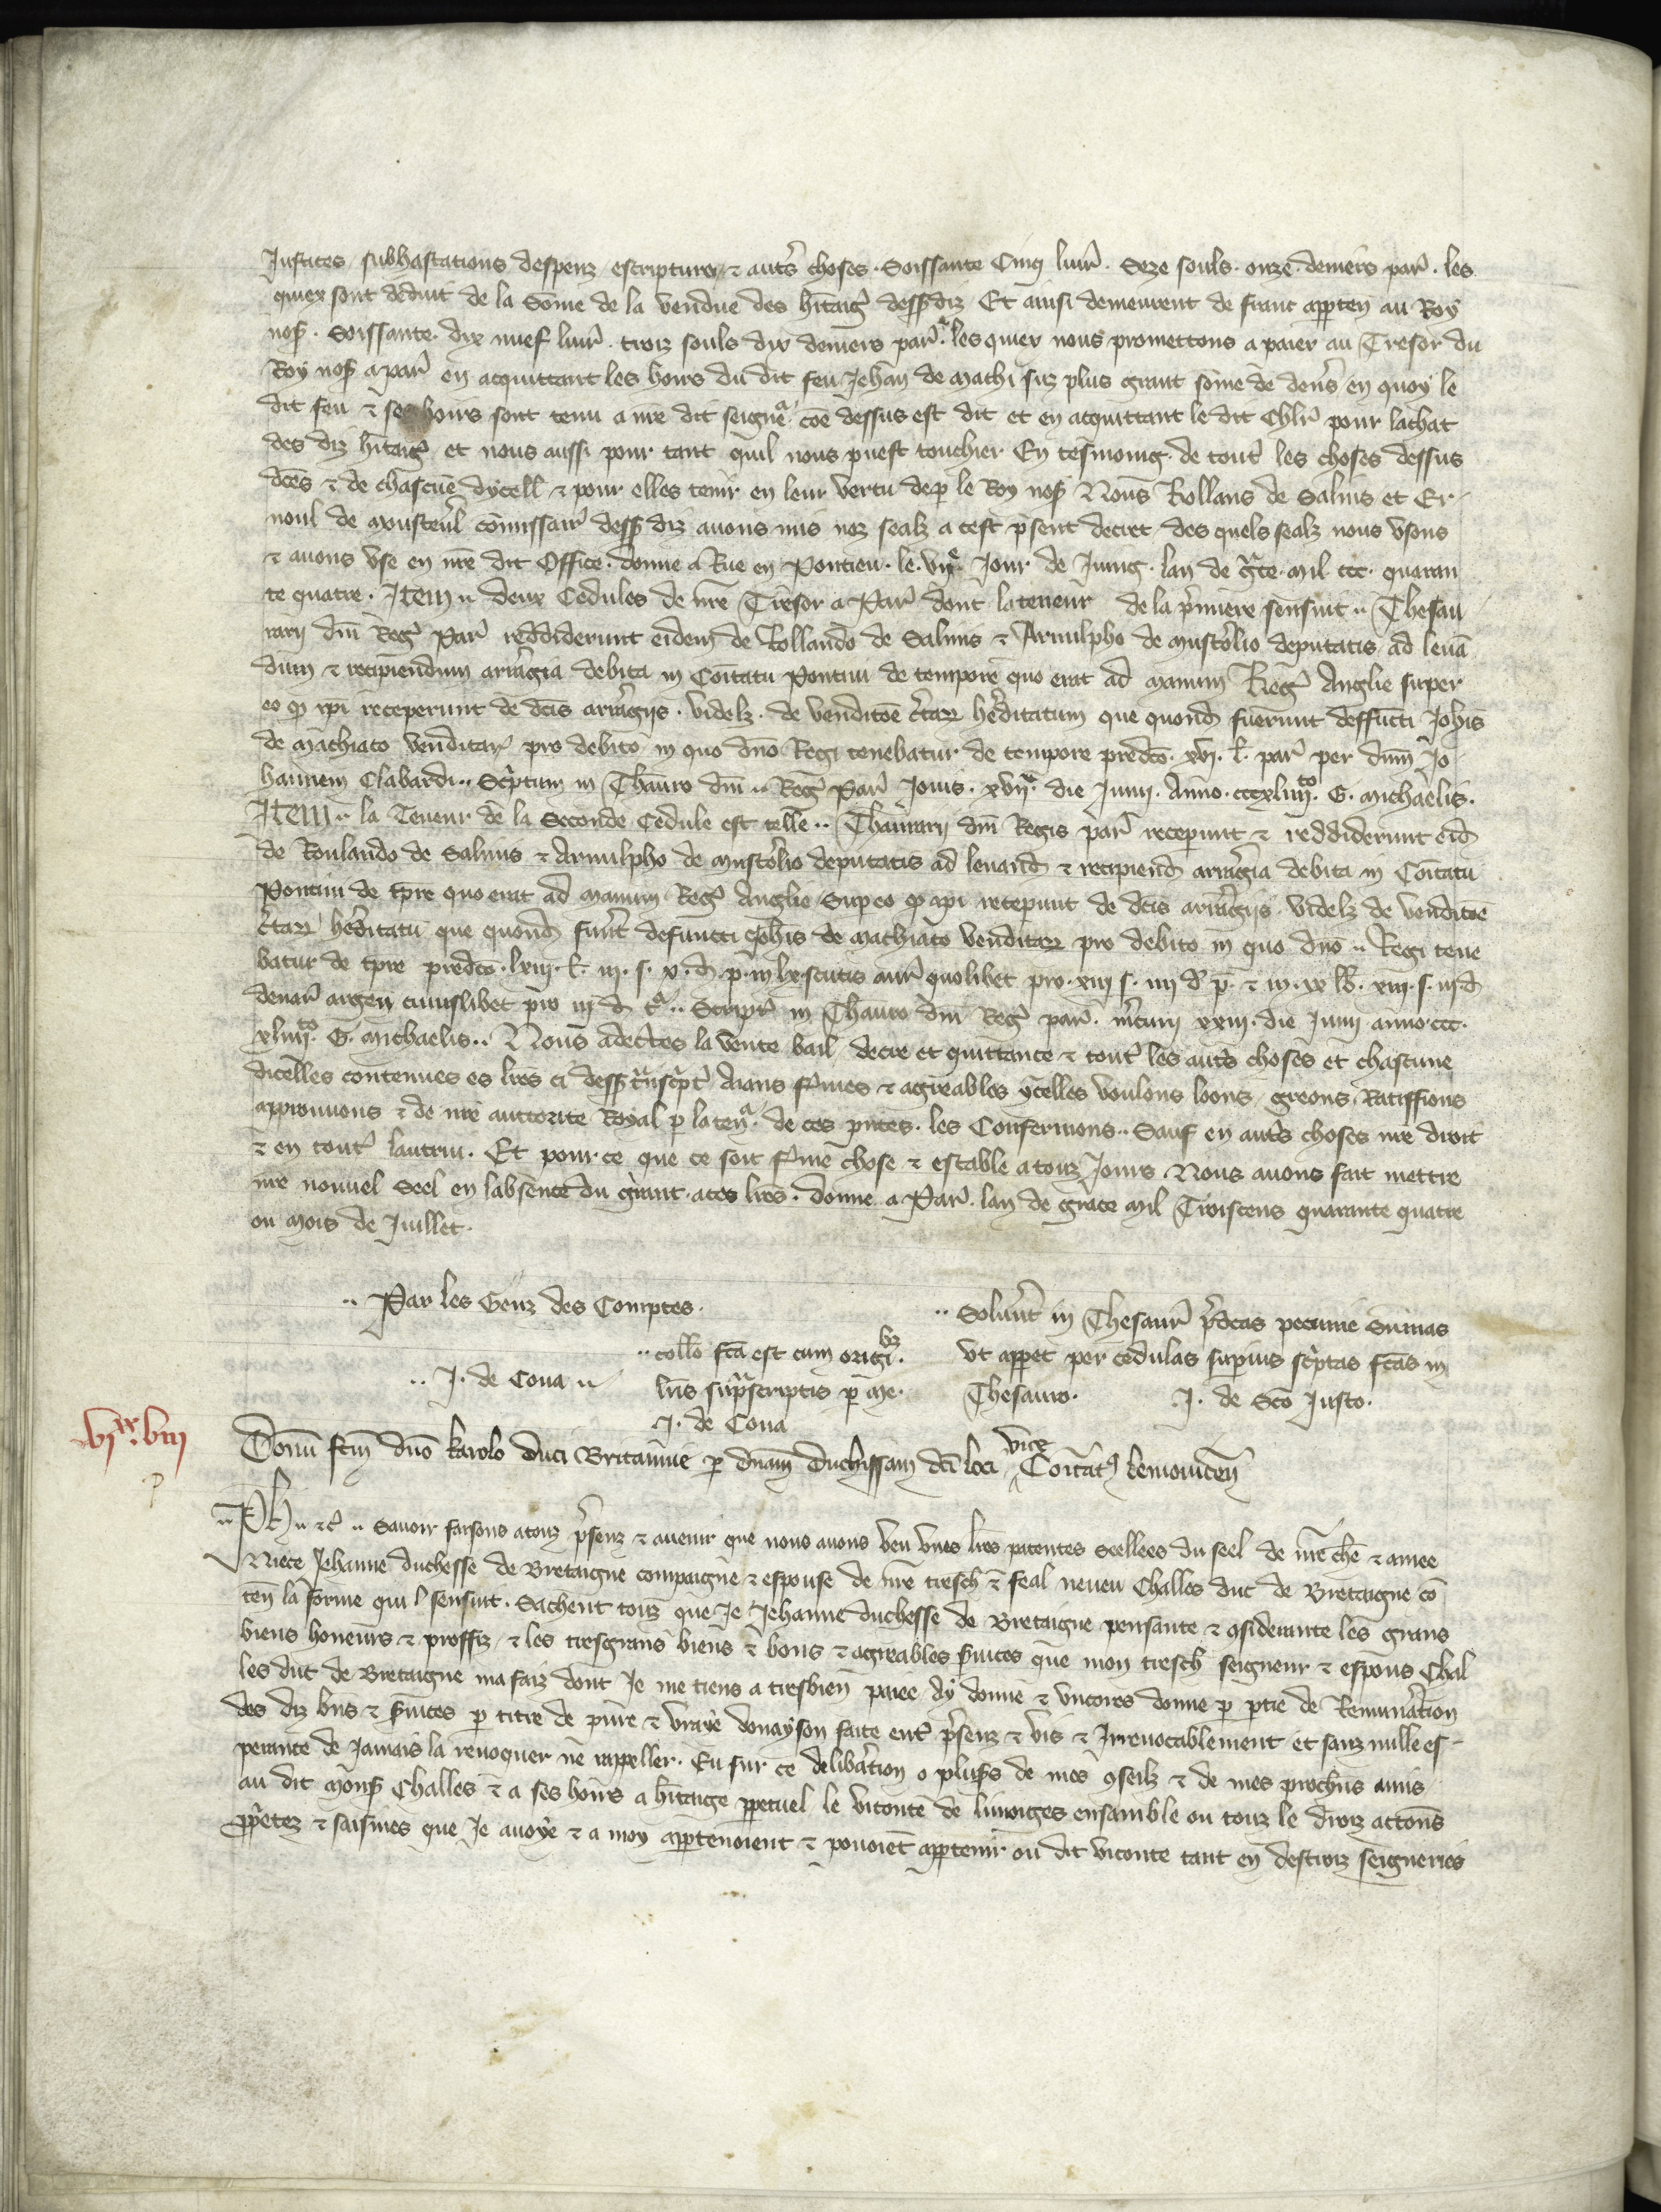 Justices / subhastations despenz / escriptures / ⁊ autˢ choses . Soissante Cinq liur̄ . Seze souls . onze . deniers par̄ . les
quiex sont deduit de la Som̄e de la vendue des h̄itaigˢ dess᷒ diz Et ainsi demeurent de franc apꝑten̄ au Roy
nos᷒ . Soissante . dix nuef liur̄ . troiz souls dix deniers par̄ . les quiex nous promettons a paier au Tresor du
Roy nos᷒ a par̄ en acquittant les hoirs du dit feu Jehan de Machi suz plus grant som̄e de den̄s en quoy le
dit feu ⁊ ses hoirs sont tenu a nr̄e dit seigneᵃ coē dessus est dit et en acquittant le dit Chlr̄ pour lachat
des diz h̄itaigˢ et nous aussi pour tant quil nous puest touchier En tesmoing de toutˢ les choses dessus
dc̄es ⁊ de chascun̄e dycell̄ ⁊ pour elles tenir en leur vertu de ꝑ le Roy nos᷒ Nous Rollans de Salins et Er-
noul de Monsteul̄ com̄issair̄ dess᷒ diz auons mis noz sealz a cest p̄sent decret des quels sealz nous vsons
⁊ auons vse en nr̄e dit Office . donne a Rue en Pontieu . le . vijᵉ . Jour de Juing . lan de gᵃce . Mil ccc . quaran
te quatre . Item .. deux Cedules de nr̄e Tresor a Par̄ dont la teneur de la p̄miere sensuit .. Thesau
rarij dn̄i Regˢ Par̄ reddiderunt eidem de Rollando de Salinis ⁊ Arnulpho de Mustolio deputatis ad leuā
dum ⁊ recipiendum arrˢagia debita in Com̄itatu Pontiui de tempore quo erat ad manum Regˢ Anglie super
eo qꝫ ip̄i receperunt de dc̄is arrˢagijs . videlz . de venditoe c̄tarꝝ heˢditatum que quond̄ fuerunt deffuncti Joh̄is
de Machiaco venditarꝝ pro debito in quo dn̄o Regi tenebatur de tempore predc̄o . xvj . l̄ . par̄ per dn̄m Jo
hannem Clabardi .. Scˢptum in Th̄auro dn̄i .. Regˢ Par̄ Jouis . xvijᵃ . die Junij . Anno . cccxliiijᵗᵒ . G . Michaelis .
Item .. la Teneur de la Seconde Cedule est telle .. Th̄aurarij dn̄i Regis par̄ receperunt ⁊ reddiderunt eid̄
de Roulando de Salinis ⁊ Arnulpho de Mustolio deputatis ad leuand̄ ⁊ recipiend̄ arrˢagia debita in Com̄itatu
Pontiui de tp̄re quo erat ad manum Regˢ Anglie / Suꝑ eo qꝫ ip̄i receꝑunt de dc̄is arrˢagijs . videlz de venditoe
c̄tarꝝ heˢditatū que quond̄ fuer̄t defuncti Joh̄is de Machiaco venditarꝝ pro debito in quo dn̄o .. Regi tene
batur de tp̄re predc̄o . lxiij . l̄ . iij . s . x . d̄ . p̄ . in lx . scutis aur̄ quolibet pro . xiij s . iiij d̄ p̄ . ⁊ in . xx lb̄ . xiij . s . iiij d̄
denar̄ argen̄ cuiuslibet pro iij d̄ tᵃ .. Script̄ in Th̄auro dn̄i Regˢ par̄ . mˢcurij xxiij . die Junij anno . ccc .
xliiijᵗᵒ . G . Michaelis .. Nous adec̄tes la vente bail / decre et quittance ⁊ toutˢ les autˢ choses et chascune
dicelles contenues es lr̄es ci dess᷒ tᵃnscˢptˢ Aians fˢmes ⁊ agreables ycelles voulons loons / greons Ratiffions
approuuons ⁊ de nr̄e auctorite Royal ꝑ la tenᵃ . de ces pn̄tes . les Confermons .. Sauf en autˢ choses nr̄e droit
⁊ en toutˢ lautrui . Et pour ce que ce soit fˢme chose ⁊ estable a touz Jours . Nous auons fait mettre
nr̄e nouuel Seel en labsence du grant . a ces lr̄es . donne a Par̄ . lan de grace Mil Troiscens quarante quatre
ou Mois de Juillet .
.. Par les Genz des Comptes .
.. Solu̅nt̄ in Thesaur̄ p̄dc̄as pecunie Sum̄as
.. coll̄o fc̄a est cum origiˡᵇᶻ .
vt apꝑet per cedulas suꝑius scˢptas fc̄as in
.. J . de Cona ..
lr̄is supᵃscriptis ꝑ me .
Thesauro .
J . de Sc̄o Justo .
J . de Cona
vjˣˣ . viij
Donū fc̄m dn̄o karolo duci Britannie ꝑ dn̄am duchissam dc̄i loci vice Com̄itatꝰ Lemouicen̄
.. Ph̄ .. ⁊c̄ .. Sauoir faisons a touz p̄senz ⁊ auenir que nous auons veu vnes lr̄es patentes Scellees du seel de nr̄e chē ⁊ amee
Niece Jehanne duchesse de Bretaigne compaigne ⁊ espouse de nr̄e tresch̄ ⁊ feal neueu Challes duc de Bretaigne cō
ten̄ la forme qui l sensuit . Sachent touz que Je Jehanne duchesse de Bretaigne pensante ⁊ ꝯsiderante les grans
biens honeurs ⁊ proffiz / ⁊ les tresgrans biens ⁊ bons ⁊ agreables s̄uices que mon tresch̄ seigneur ⁊ espous Chal
les duc de Bretaigne ma faiz dont Je me tiens a tresbien paiee Ay donne ⁊ vncores donne ꝑ ꝑtie de Remunac̄ion
des diz bn̄s ⁊ s̄uices ꝑ titre de pure ⁊ vraye donayson faite entˢ p̄senz ⁊ vis ⁊ Irreuocablement et sanz nulle es-
perance de Jamais la reuoquer ne rappeller . Eu sur ce delibac̄ion o plus᷒s de mes ꝯseilz ⁊ de mes prochīs amis
au dit mons᷒ Challes ⁊ a ses hoirs a h̄itaige ꝑpetuel le viconte de limoiges ensamble ou touz le droiz actōns
ꝓpˢetez ⁊ saisines que Je auoye ⁊ a moy apꝑtenoient ⁊ pouoiēt apꝑtenir ou dit viconte tant en destroiz seigneries